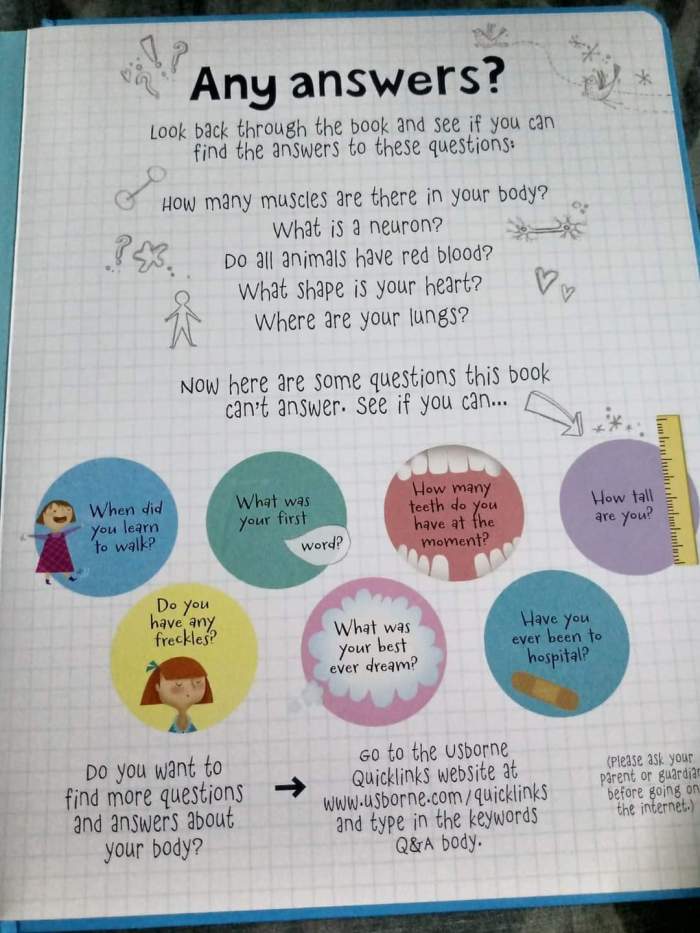 Any answers?
Look back through the book and see if you can
find the answers to these questions:
How many muscles are there in your body?
What is a neuron?
Do all animals have red blood?
What shape is your heart?
Where are your lungs?
Now here are some questions this book
can't answer. See if you can...
When did
you learn
to walk?
What was
your first
word?
How many
teeth do you
have at the
moment?
How tall
are you?
Do you
have any
freckles?
What was
your best
ever dream?
Have you
ever been to
hospital?
Do you want to
find more questions
and answers about
your body?
→
Go to the Usborne
Quicklinks website at
www.usborne.com/quicklinks
and type in the keywords
Q&A body.
(Please ask your
parent or guardian
before going on
the internet.)